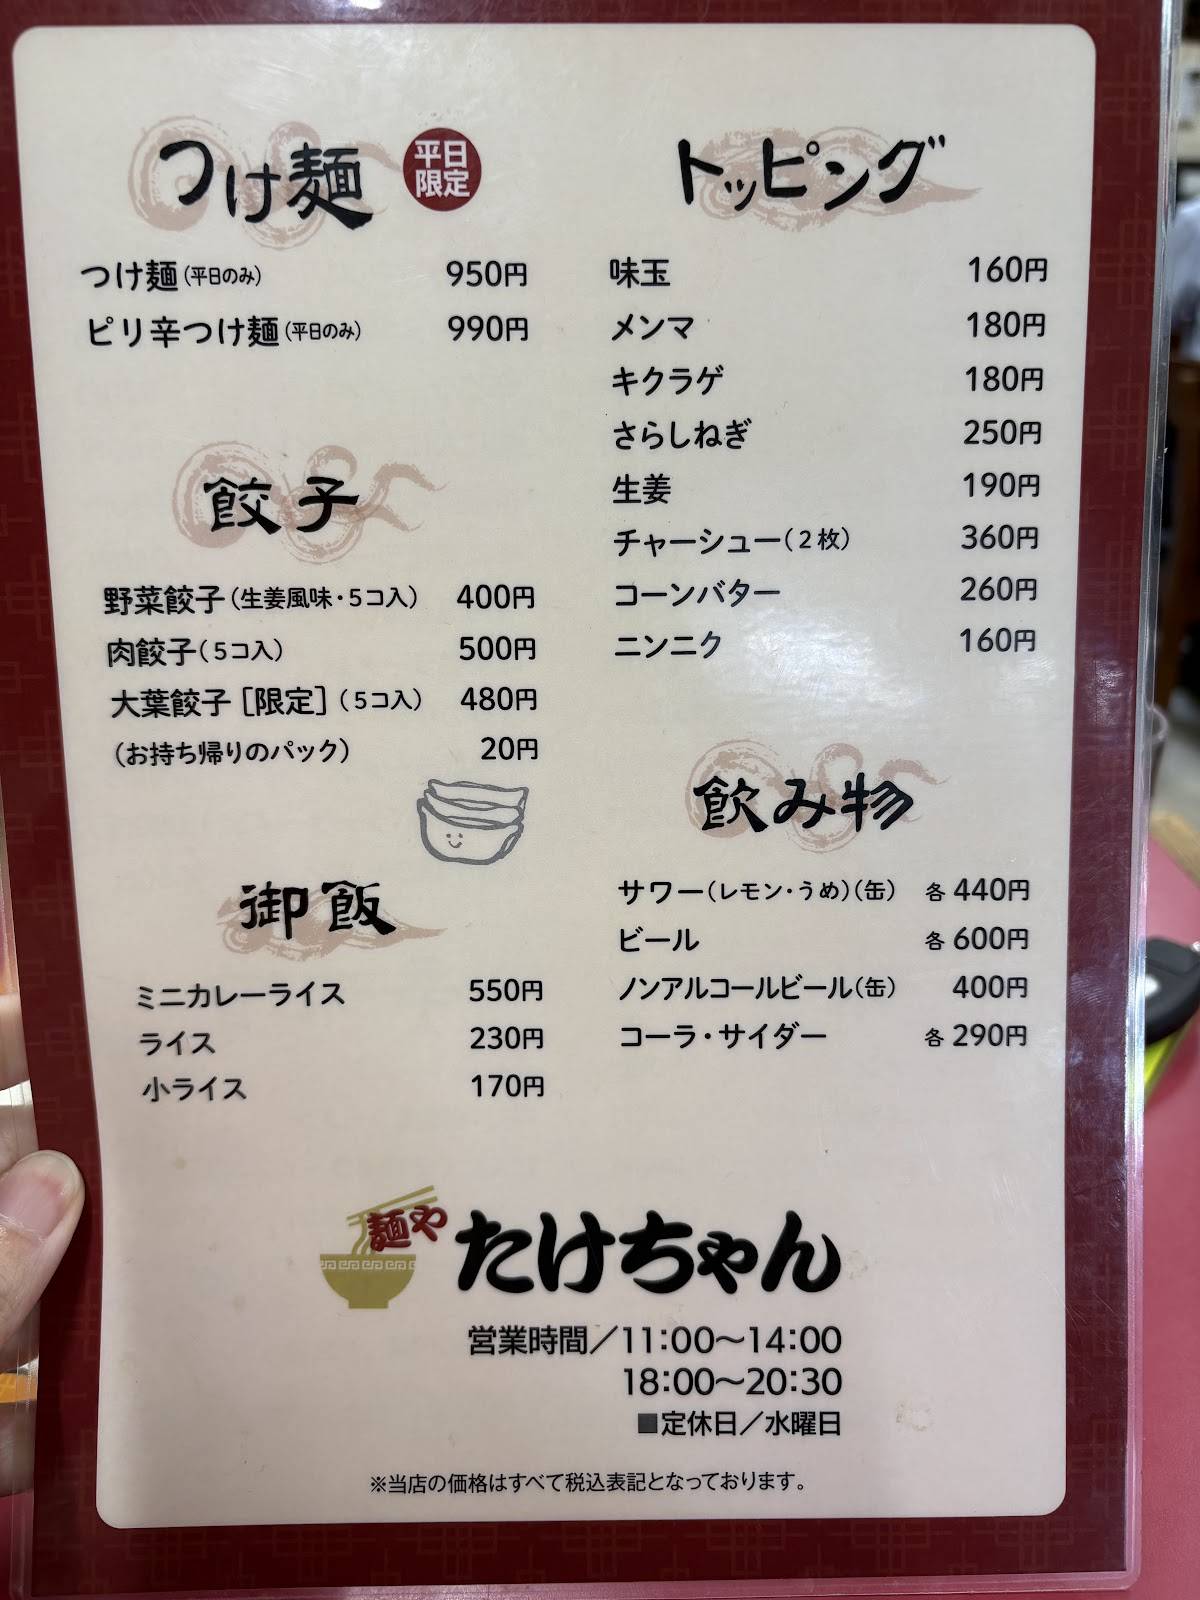 つけ麺 平日限定
つけ麺(平日のみ) 950円
ピリ辛つけ麺(平日のみ) 990円
餃子
野菜餃子(生姜風味・5コ入) 400円
肉餃子(5コ入) 500円
大葉餃子[限定](5コ入) 480円
(お持ち帰りのパック) 20円
御飯
ミニカレーライス 550円
ライス 230円
小ライス 170円
トッピング
味玉 160円
メンマ 180円
キクラゲ 180円
さらしねぎ 250円
生姜 190円
チャーシュー(2枚) 360円
コーンバター 260円
ニンニク 160円
飲み物
サワー(レモン・うめ)(缶) 各440円
ビール 各600円
ノンアルコールビール(缶) 400円
コーラ・サイダー 各290円
麺や たけちゃん
営業時間/11:00〜14:00
18:00〜20:30
■定休日/水曜日
※当店の価格はすべて税込表記となっております。